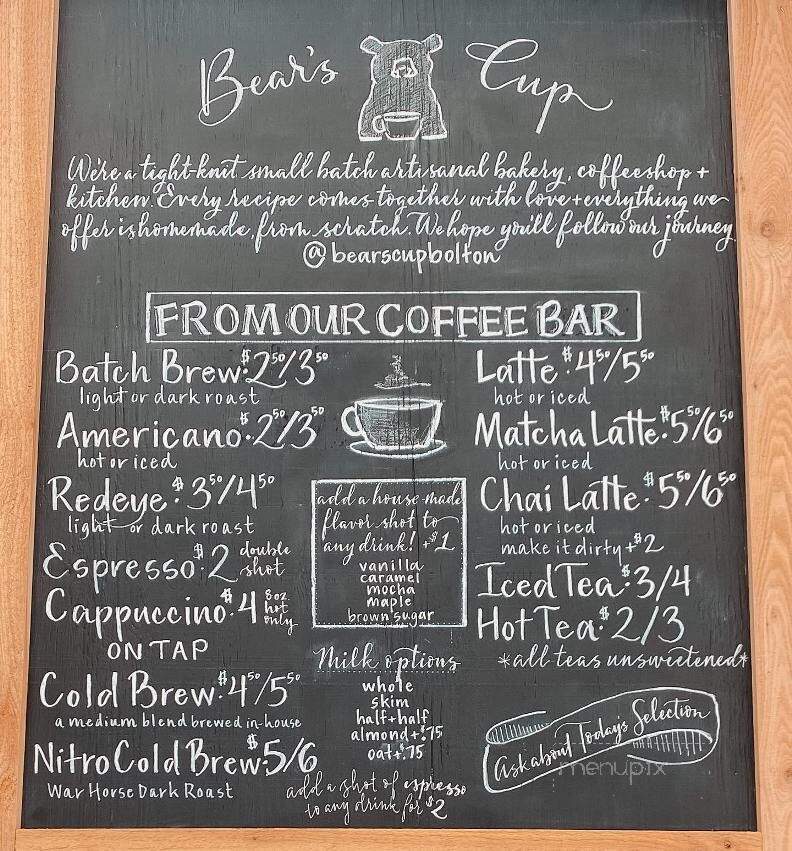 Bear's Cup
We're a tight-knit small batch artisanal bakery, coffeeshop +
kitchen. Every recipe comes together with love + everything we
offer is homemade, from scratch. We hope you'll follow our journey
@bearscupbolton
FROM OUR COFFEE BAR
Batch Brew: $2⁵⁰/3⁵⁰
light or dark roast
Americano: $2⁵⁰/3⁵⁰
hot or iced
Redeye: $3⁵⁰/4⁵⁰
light or dark roast
Espresso: $2 double shot
Cappuccino: $4 8oz. hot only
ON TAP
Cold Brew: $4⁵⁰/5⁵⁰
a medium blend brewed in-house
Nitro Cold Brew: $5/6
War Horse Dark Roast
add a house-made
flavor shot to
any drink! +$1
vanilla
caramel
mocha
maple
brown sugar
Milk options
whole
skim
half+half
almond +$.75
oat +$.75
add a shot of espresso
to any drink for $2
Latte: $4⁵⁰/5⁵⁰
hot or iced
Matcha Latte: $5⁵⁰/6⁵⁰
hot or iced
Chai Latte: $5⁵⁰/6⁵⁰
hot or iced
make it dirty +$2
Iced Tea: $3/4
Hot Tea: $2/3
*all teas unsweetened*
Ask about Todays Selection
menupix